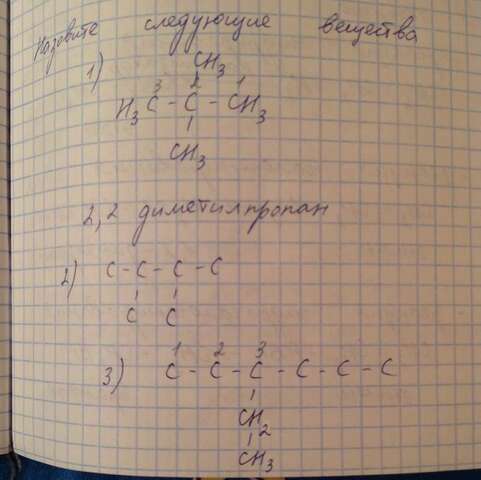 Назовите следующие вещества
CH₃
1) 3 2 1
H₃C - C - CH₃
CH₃
2,2 диметилпропан
2) C - C - C - C
C C
1 2 3
3) C - C - C - C - C - C
CH₂
CH₃